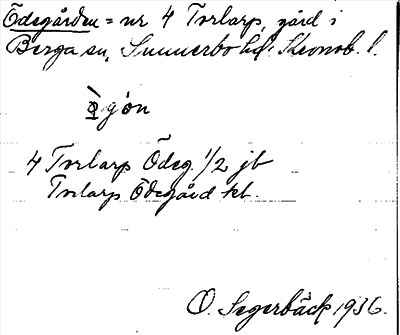 Ödegården = nr 4 Torlarp, gård i
Berga sn, Sunnerbo hd. Kronob. l.
4 Torlarp Ödeg. 1/2 jb
Torlarp Ödegård kb.
O. Segerbäck 1936.